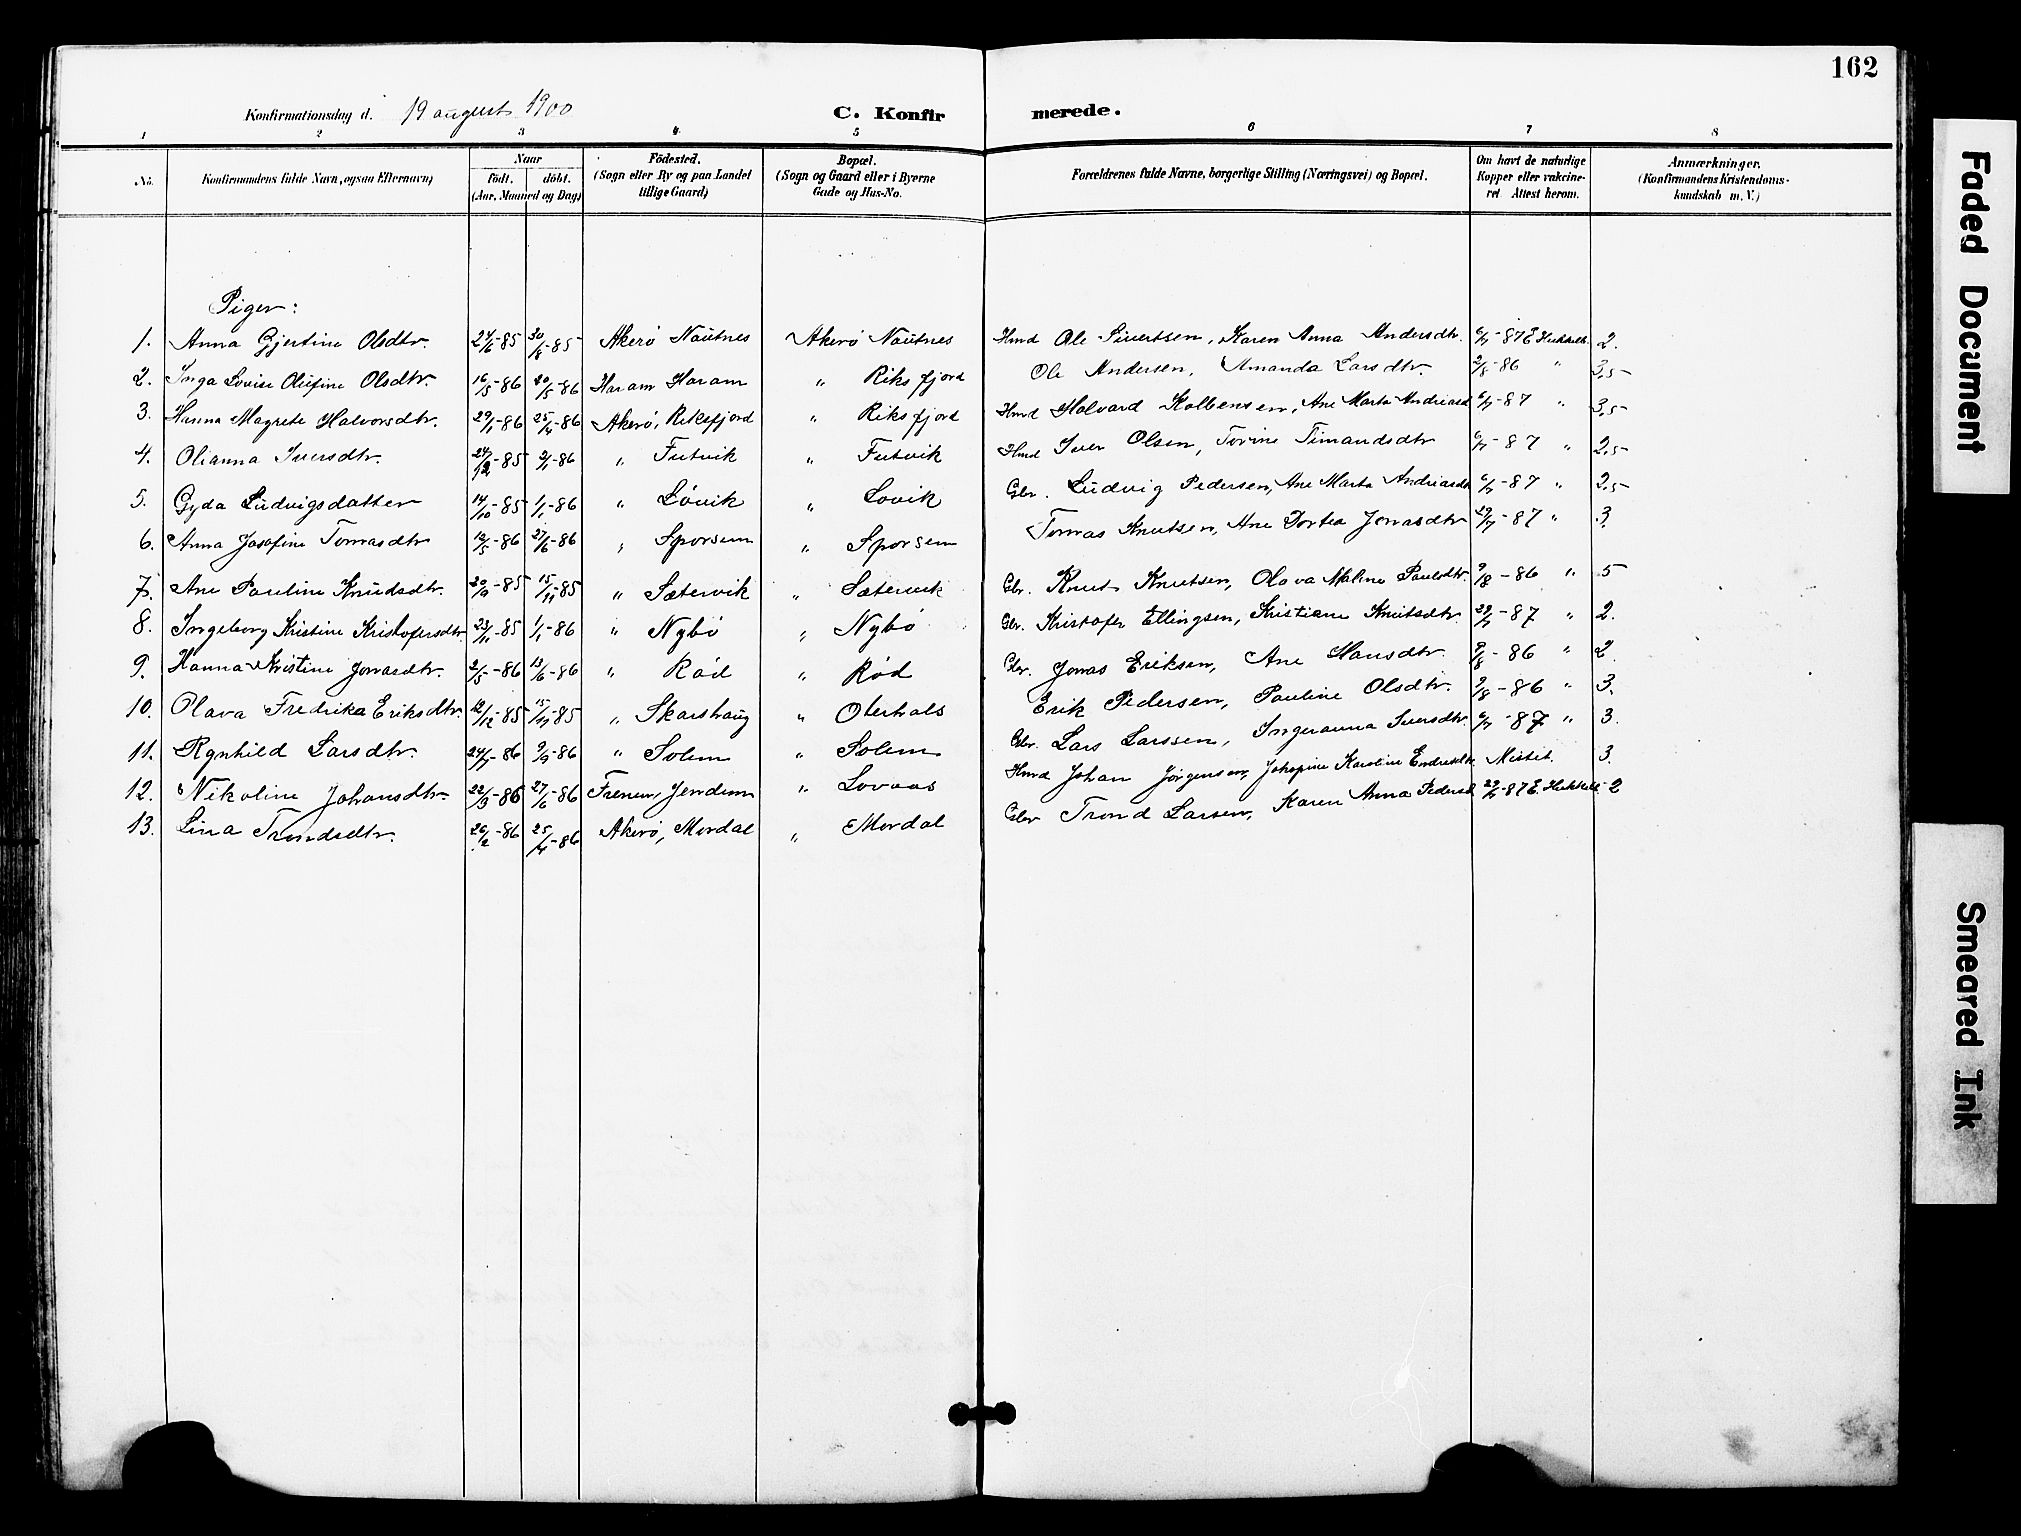 162
Konfirmationsdag d. 19 august 1900
C. Konfirmerede.
1 2 3 4 5 6 7 8
No. Konfirmandens fulde Navn, ogsaa Efternavn) Naar födt. döbt. (Aar, Maaned og Dag) Födested. (Sogn eller By og paa Landet tillige Gaard) Bopæl. (Sogn og Gaard eller i Byerne Gade og Hus-No. Forældrenes fulde Navne, borgerlige Stilling (Næringsvei) og Bopæl. Om havt de naturlige Kopper eller vakcineret Attest herom. Anmærkninger. (Konfirmandens Kristendomskundskab m. V.)
Piger:
1. Anna Gjertine Olsdtr. 24/6-85 30/8-85 Akerø Nautnes Akerø Nautnes Hmd Ole Sivertsen, Karen Anna Andersdtr. 6/7-87 2.
2. Inga Lovise Olufine Olsdtr. 16/5-86 20/5-86 Haram Haram " Riksfjord Ole Andersen, Amanda Larsdtr. 2/8-86 " 3,5
3. Hanna Magrete Halvorsdtr. 29/1-86 25/4-86 Akerø, Riksfjord " Riksfjord Hmd Halvard Kolbensen, Ane Marta Andreasd 6/7-87 " 3,5
4. Olianna Iversdtr. 24/12-85 3/1-86 " Futvik " Futvik Hmd Iver Olsen, Torine Timandsdtr 6/7-87 " 2,5
5. Gyda Ludvigsdatter 14/10-85 1/1-86 " Løvik " Lovik Gbr. Ludvig Pedersen, Ane Marta Andreasdt 6/7-87 " 2,5
6. Anna Josefine Tomasdtr 12/5-86 27/6-86 " Sporsem " Sporsem Tomas Knutsen, Ane Dortea Jonasdtr 29/7-87 " 3.
7. Ane Pauline Knudsdtr. 20/9-85 15/11-85 " Sætervik " Sætervik Gbr. Knut Knutsen, Olava Maline Paulsdtr. 9/8-86 " 5
8. Ingeborg Kristine Kristofersdtr 23/11-85 1/1-86 " Nybø " Nybø Gbr. Kristofer Ellingsen, Kristiane Knutsdtr. 29/7-87 " 2.
9. Hanna Kristine Jonasdtr. 2/5-86 13/6-86 " Rød " Rød Gbr. Jonas Eriksen, Ane Hansdtr. 9/8-86 " 2
10. Olava Fredrika Eriksdtr. 12/12-85 15/11-85 " Skarshaug " Oterhals Erik Pedersen, Pauline Olsdtr. 9/8-86 " 3.
11. Rgnhild Larsdtr. 24/7-86 9/9-86 " Solem " Solem Gbr. Lars Larssen, Ingeranna Iversdtr. 6/7-87 " 3.
12. Nikoline Johansdtr. 22/3-86 27/6-86 Frenen, Jendem " Lovaas Hmd Johan Jørgensen, Josefine Karoline Endresdtr Mistet. 3.
13. Lina Trondsdtr. 26/2-86 25/4-86 Akerø, Mordal " Mordal Gbr Trond Larsen, Karen Anna Pedersd 29/7-87 2
Faded Document
Smeared Ink